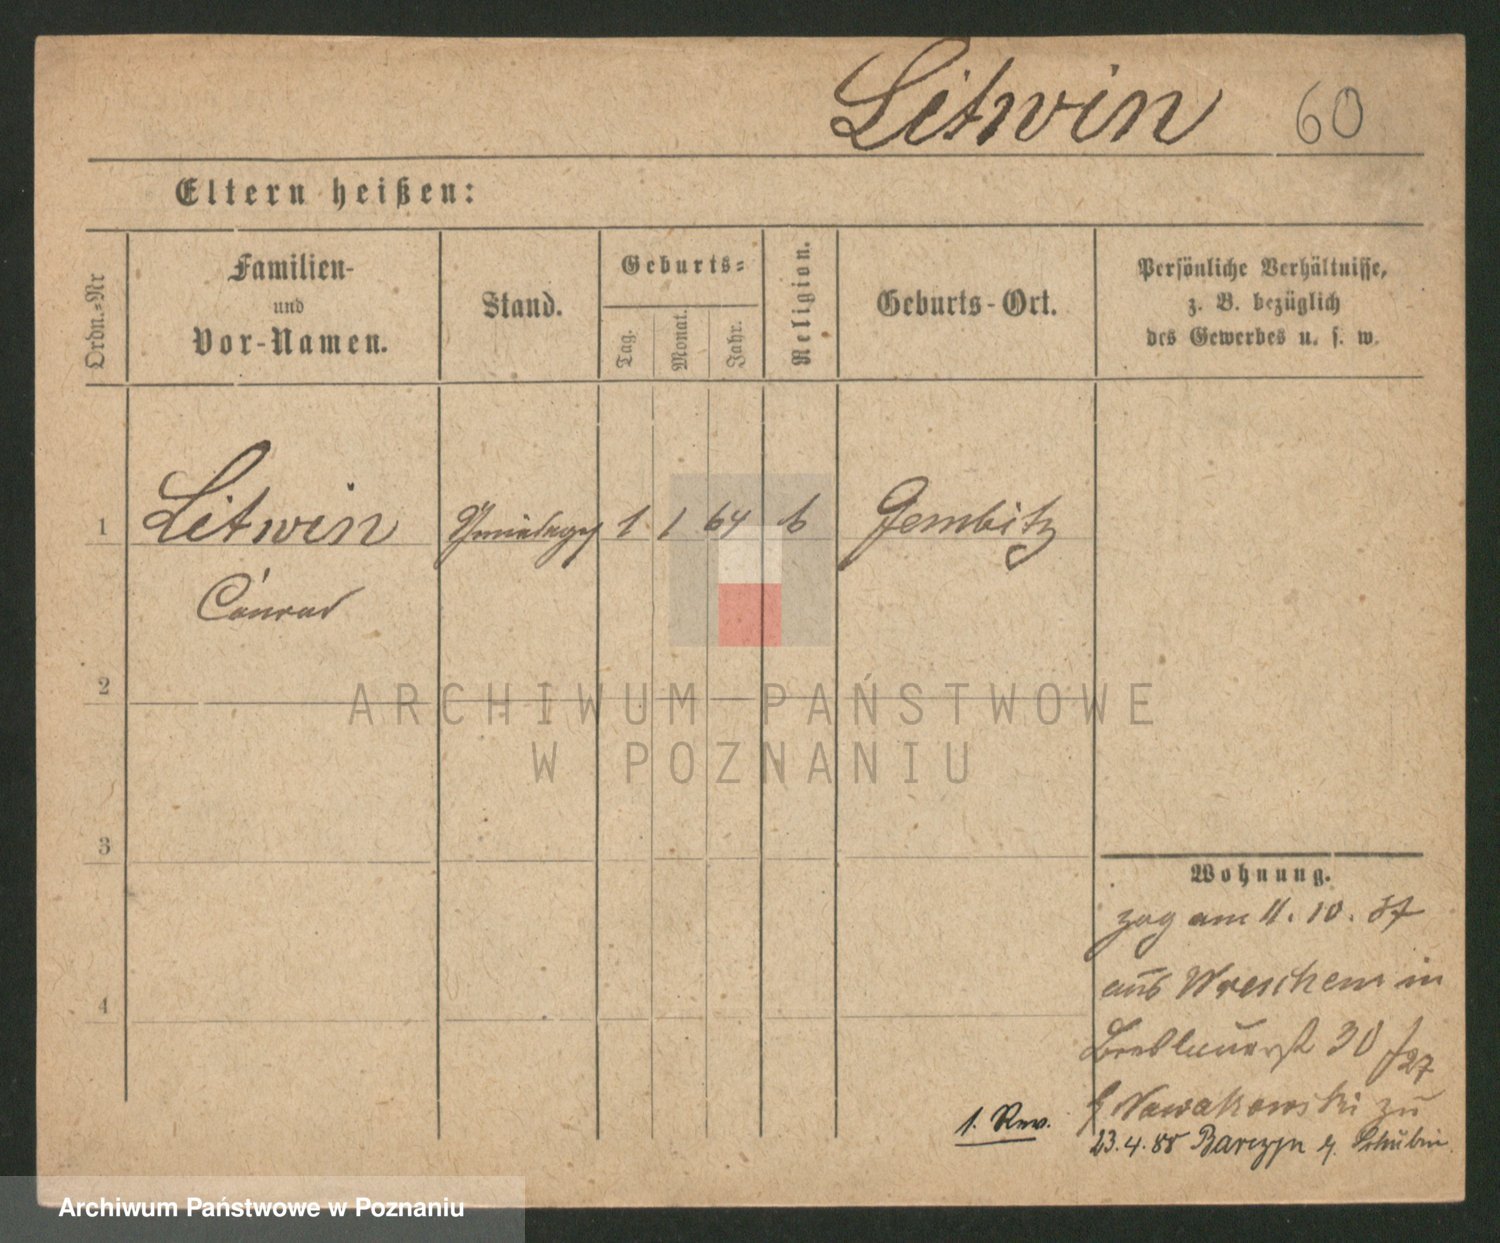 Litwin 60
Eltern heißen:
Ordn.-Nr
Familien-
und
Vor-Namen.
Stand.
Geburts-
Tag.
Monat.
Jahr.
Religion.
Geburts-Ort.
Persönliche Verhältnisse,
z. B. bezüglich
des Gewerbes u. s. w.
1 Litwin 1 1 64 Gembitz
Conrad
2
3
4
Wohnung.
zog am 11. 10. 87
aus Wreschen in
Breslauerst 30 27
Nowakowski zu
1. Rev.
23.4.88 Barczyn Schubin
ARCHIWUM PAŃSTWOWE
W POZNANIU
Archiwum Państwowe w Poznaniu